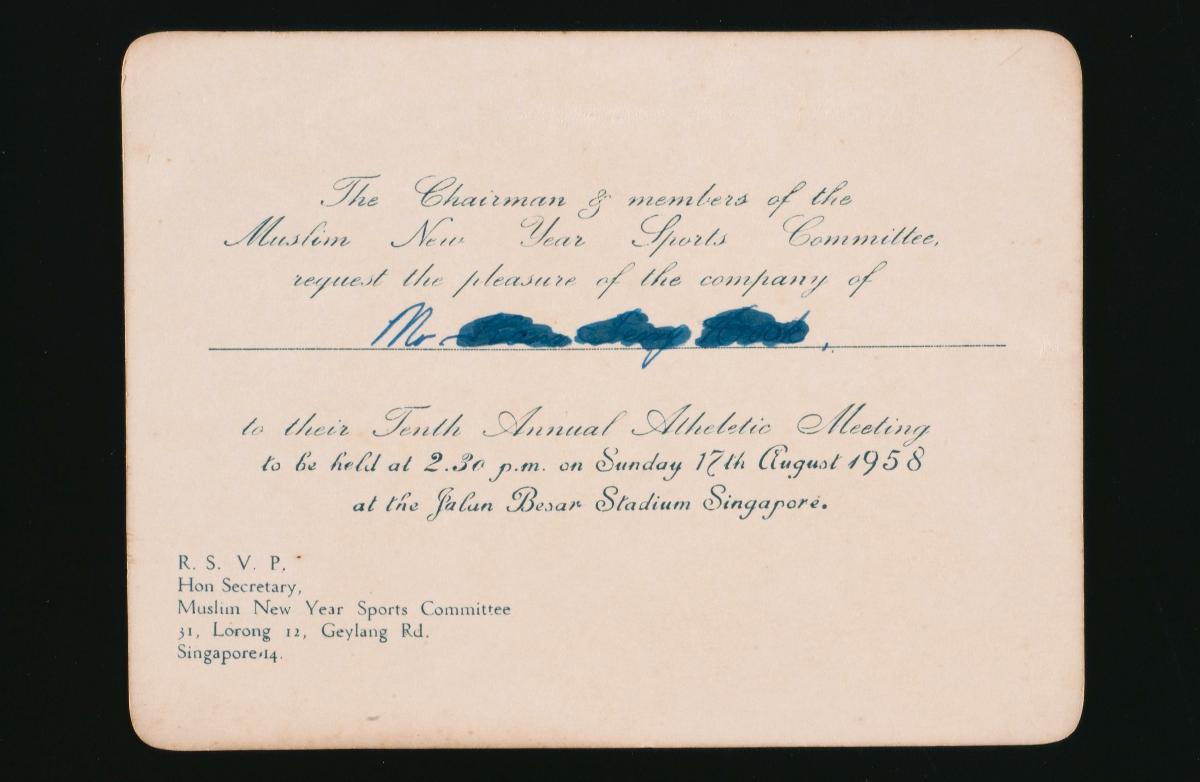 The Chairman & members of the
Muslim New Year Sports Committee,
request the pleasure of the company of
Mr
to their Tenth Annual Atheletic Meeting
to be held at 2.30 p.m. on Sunday 17th August 1958
at the Jalan Besar Stadium Singapore.
R. S. V. P.
Hon Secretary,
Muslim New Year Sports Committee
31, Lorong 12, Geylang Rd.
Singapore-14.